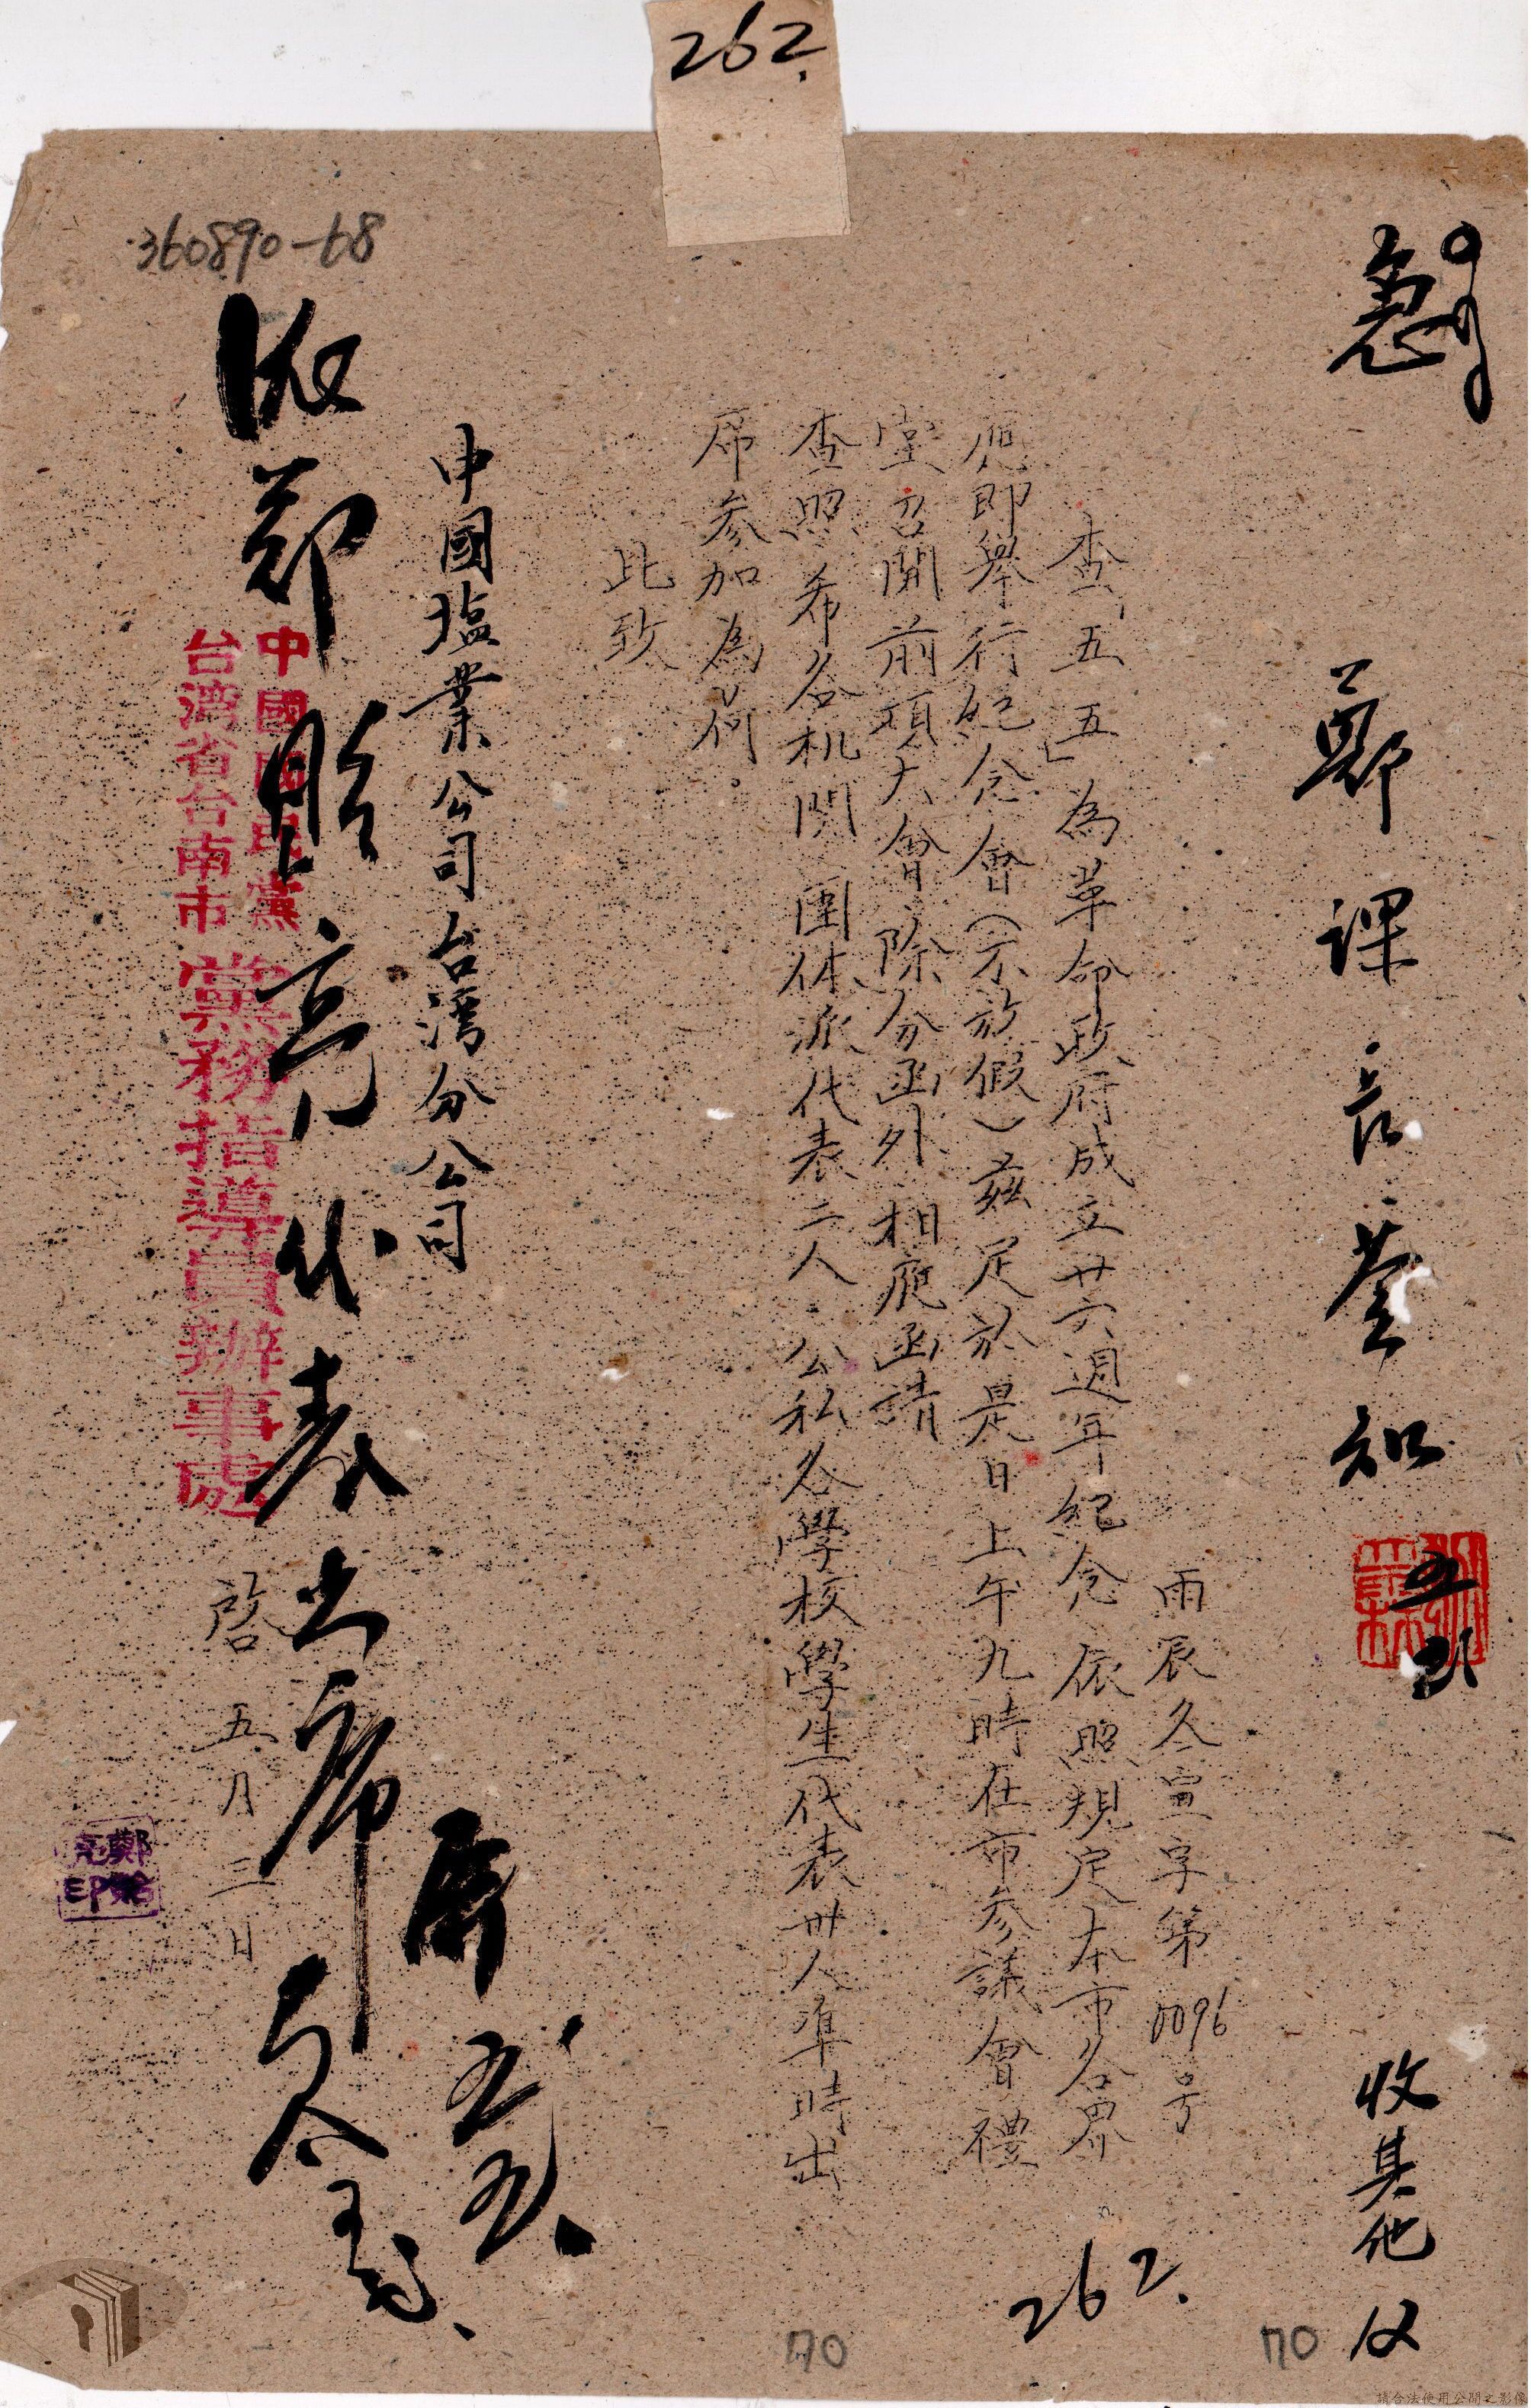 262.
360890-68
急
鄭課長荃知
五、
收其他
雨辰冬宣字第0096号
查「五五」為革命政府成立廿六週年紀念依照規定本市各界
應即舉行紀念會（不放假）茲定於是日上午九時在市參議會禮
堂召開前項大會除分函外相應函請
查照希各机関團体派代表二人公私各學校學生代表卅人準時出
席參加為荷。
此致
中國塩業公司台灣分公司
中國國民黨
台湾省台南市
黨務指導員辦事處
啓 五月三日
派鄭貽亮代表出席
五五
鄭貽亮印
262.
70
70
請合法使用公開之影像